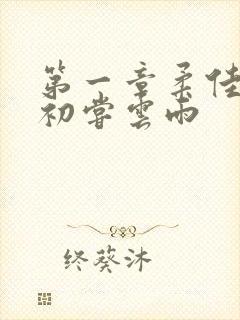 第一章柔佳
初尝雲雨
终葵沐